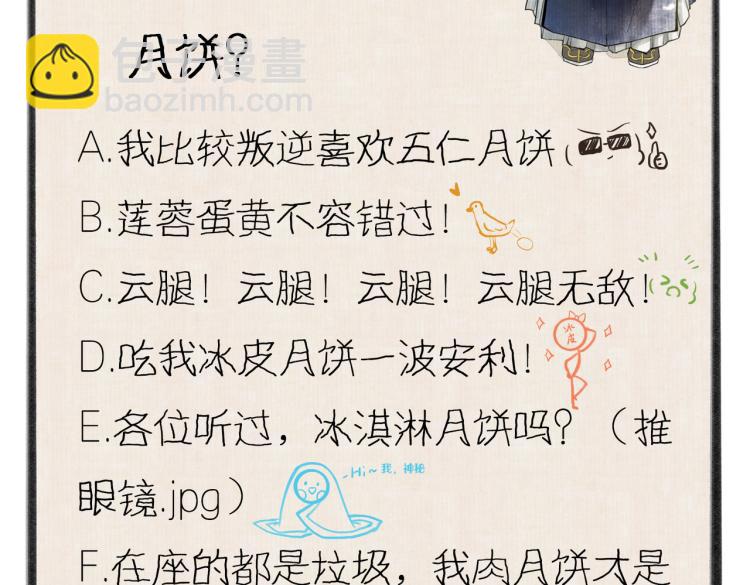 月饼？
包子漫畫
baozimh.com
A.我比较叛逆喜欢五仁月饼
B.莲蓉蛋黄不容错过！
C.云腿！云腿！云腿！云腿无敌！
D.吃我冰皮月饼一波安利！
冰皮
E.各位听过，冰淇淋月饼吗？（推
眼镜.jpg）
Hi~我，神秘
F.在座的都是垃圾，我肉月饼才是